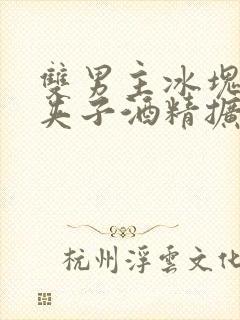 雙男主冰塊
夾子酒精擴
杭州浮雲文化